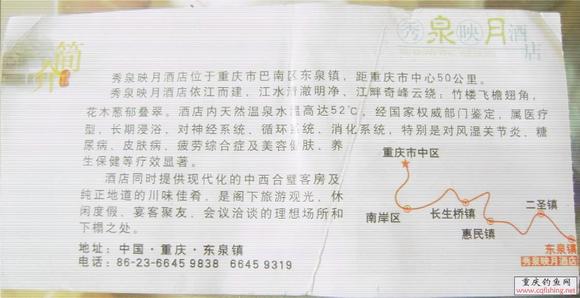 简介
秀泉映月酒店
秀泉映月酒店位于重庆市巴南区东泉镇，距重庆市中心50公里。
秀泉映月酒店依江而建，江水清澈明净、江畔奇峰云绕；竹楼飞檐翅角，
花木葱郁叠翠。酒店内天然温泉水温高达52℃，经国家权威部门鉴定，属医疗
型，长期浸浴，对神经系统、循环系统、消化系统，特别是对风湿关节炎、糖
尿病、皮肤病、疲劳综合症及美容健肤、养
生保健等疗效显著。
酒店同时提供现代化的中西合璧客房及
纯正地道的川味佳肴，是阁下旅游观光，休
闲度假、宴客聚友，会议洽谈的理想场所和
下榻之处。
地址：中国·重庆·东泉镇
电话：86-23-6645 9838 6645 9319
重庆市中区
南岸区
长生桥镇
惠民镇
二圣镇
东泉镇
秀泉映月酒店
重庆钓鱼网
www.cqfishing.net